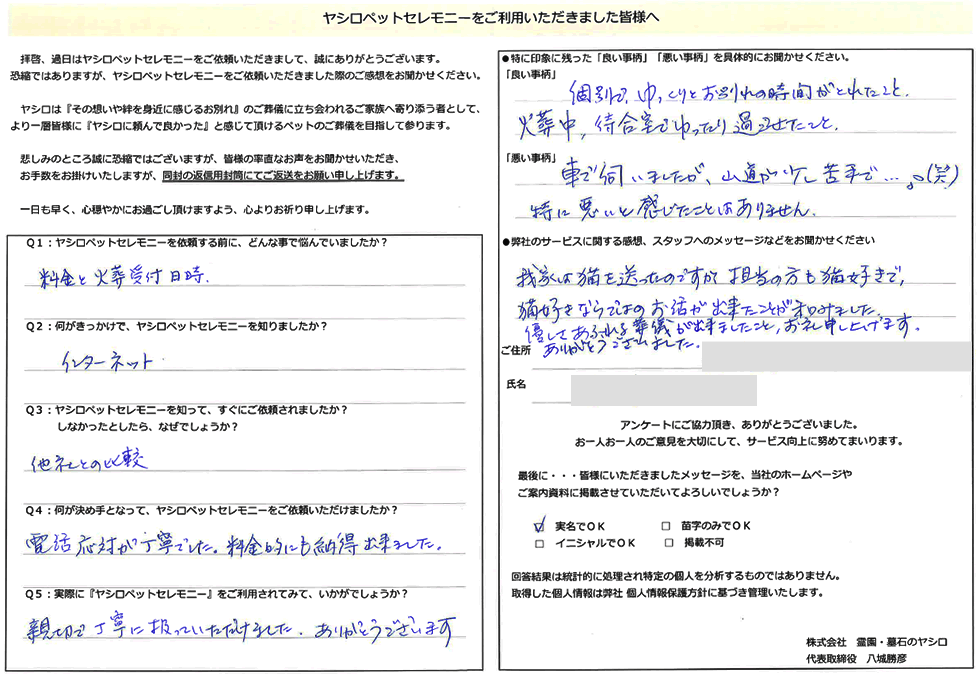 ヤシロペットセレモニーをご利用いただきました皆様へ
拝啓、過日はヤシロペットセレモニーをご依頼いただきまして、誠にありがとうございます。
恐縮ではありますが、ヤシロペットセレモニーをご依頼いただきました際のご感想をお聞かせください。
ヤシロは『その想いや絆を身近に感じるお別れ』のご葬儀に立ち会われるご家族へ寄り添う者として、
より一層皆様に『ヤシロに頼んで良かった』と感じて頂けるペットのご葬儀を目指して参ります。
悲しみのところ誠に恐縮ではございますが、皆様の率直なお声をお聞かせいただき、
お手数をお掛けいたしますが、同封の返信用封筒にてご返送をお願い申し上げます。
一日も早く、心穏やかにお過ごし頂けますよう、心よりお祈り申し上げます。
Q1：ヤシロペットセレモニーを依頼する前に、どんな事で悩んでいましたか？
料金と火葬受付日時.
Q2：何がきっかけで、ヤシロペットセレモニーを知りましたか？
インターネット
Q3：ヤシロペットセレモニーを知って、すぐにご依頼されましたか？
しなかったとしたら、なぜでしょうか？
他社との比較
Q4：何が決め手となって、ヤシロペットセレモニーをご依頼いただけましたか？
電話応対が丁寧でした。料金的にも納得出来ました。
Q5：実際に『ヤシロペットセレモニー』をご利用されてみて、いかがでしょうか？
親切で丁寧に扱っていただけました. ありがとうございます
●特に印象に残った「良い事柄」「悪い事柄」を具体的にお聞かせください。
「良い事柄」
個別で、ゆっくりとお別れの時間がとれたこと.
火葬中, 待合室でゆったり過ごせたこと.
「悪い事柄」
車で伺いましたが、山道が少し苦手で…。(笑)
特に悪いと感じたことはありません.
●弊社のサービスに関する感想、スタッフへのメッセージなどをお聞かせください
我家は猫を送ったのですが担当の方も猫好きで,
猫好きならではのお話が出来たことが和みました.
優しさあふれる葬儀が出来ましたこと, お礼申し上げます.
ありがとうございました.
ご住所
氏名
アンケートにご協力頂き、ありがとうございました。
お一人お一人のご意見を大切にして、サービス向上に努めてまいります。
最後に・・・皆様にいただきましたメッセージを、当社のホームページや
ご案内資料に掲載させていただいてよろしいでしょうか？
☑ 実名でOK □ 苗字のみでOK
□ イニシャルでOK □ 掲載不可
回答結果は統計的に処理され特定の個人を分析するものではありません。
取得した個人情報は弊社 個人情報保護方針に基づき管理いたします。
株式会社 霊園・墓石のヤシロ
代表取締役 八城勝彦